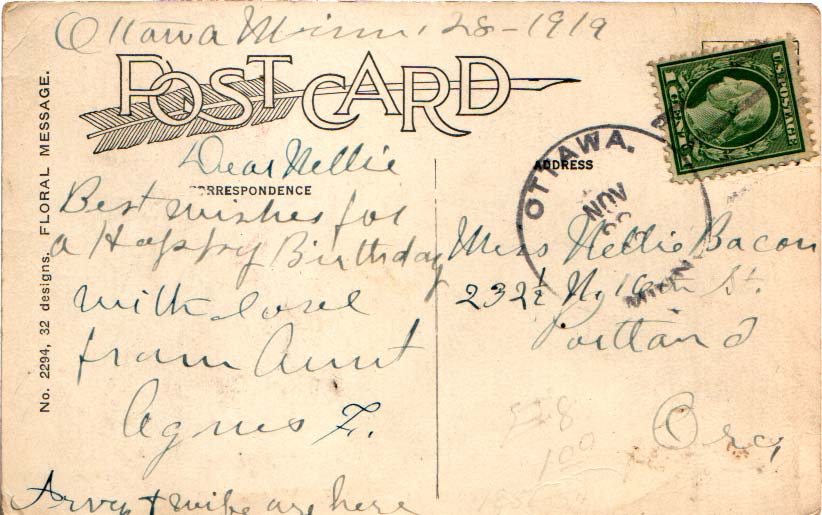 Ottawa Minn. 28-1919
POST CARD
Dear Nellie
CORRESPONDENCE
Best wishes for
a Happy Birthday
with love
from Aunt
Agnes F.
& wife are here
ADDRESS
Miss Nellie Bacon
232½ N. 16th St.
Portland
Ore,
OTTAWA.
NOV
MINN
1 CENT 1
U.S. POSTAGE
528
1.00
No. 2294, 32 designs. FLORAL MESSAGE.